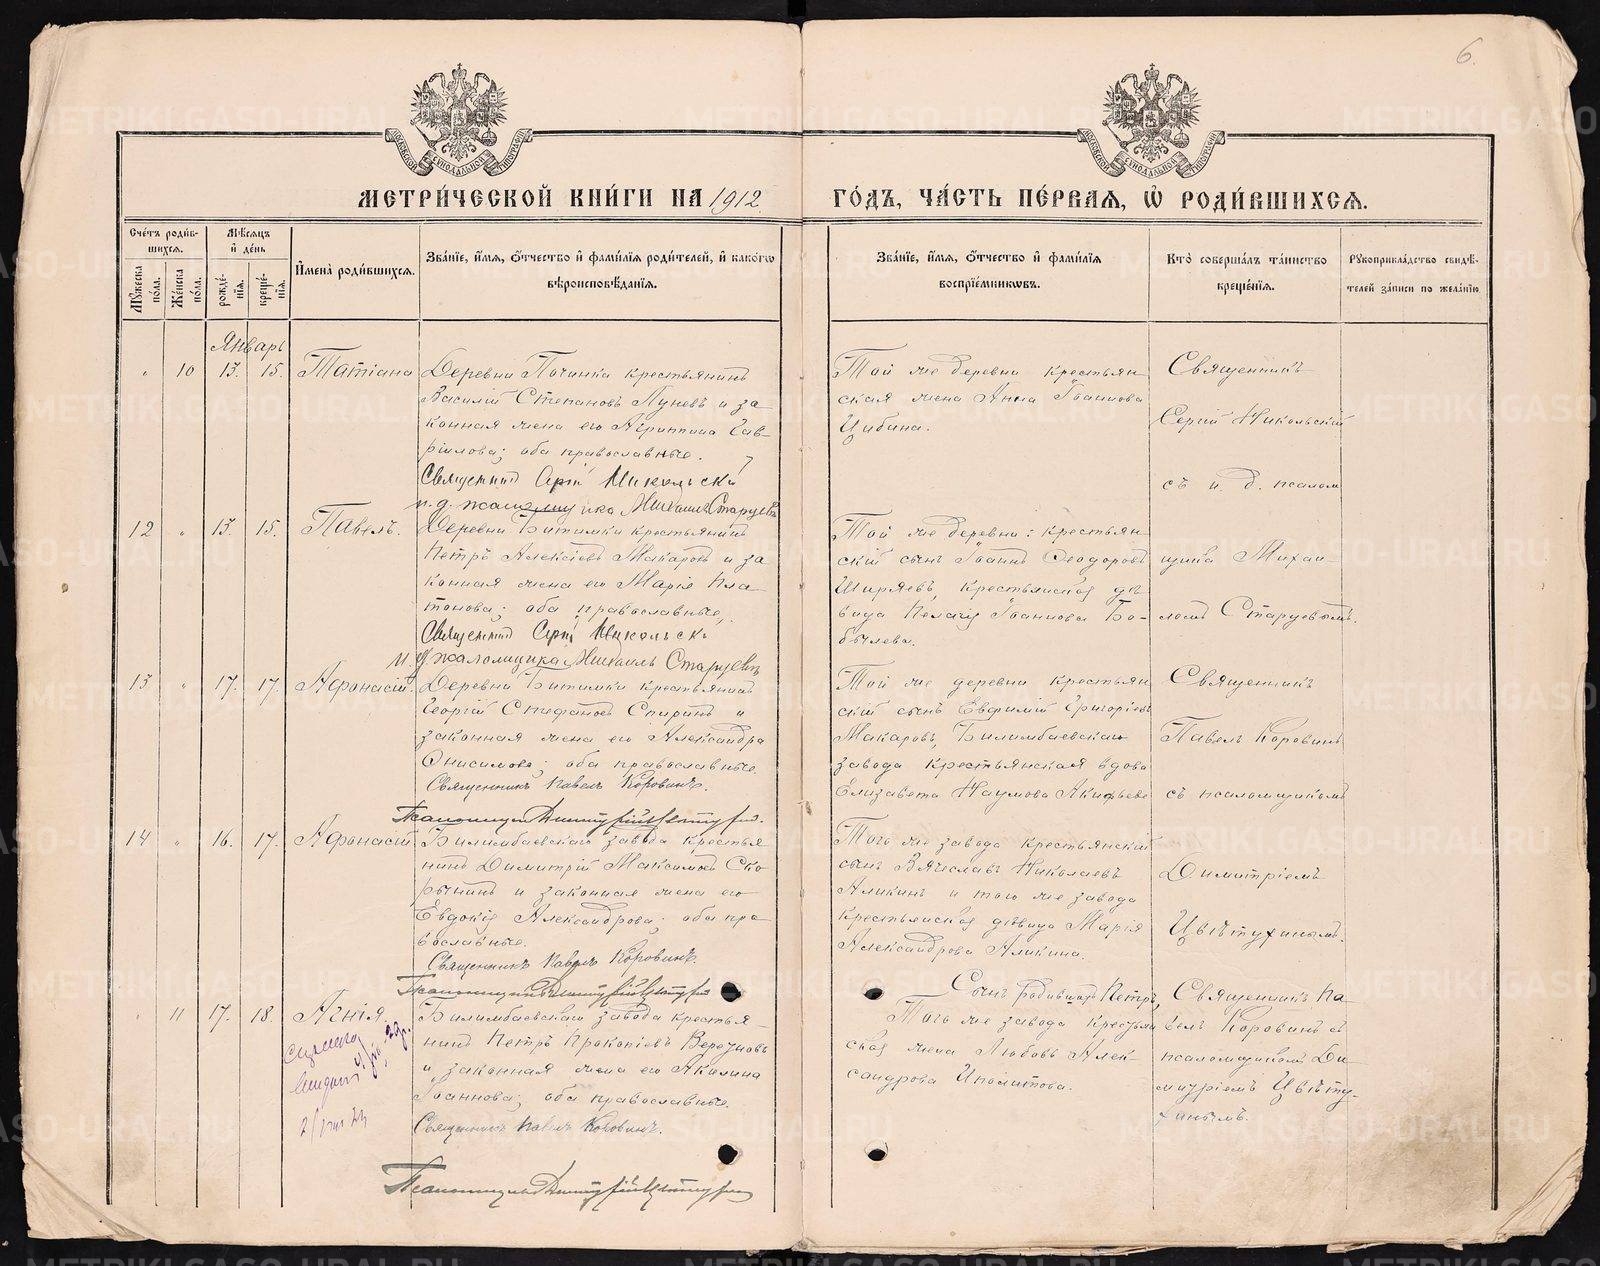 6.
МОСКОВСКОЙ СѴНОДАЛЬНОЙ ТИПОГРАФІИ
МОСКОВСКОЙ СѴНОДАЛЬНОЙ ТИПОГРАФІИ
МЕТРИ́ЧЕСКОЙ КНИ́ГИ НА 1912
ГО́ДЪ, ЧА́СТЬ ПЕ́РВАѦ, Ѽ РОДИ́ВШИХСѦ.
Сче́тъ роди́в-
шихся.
Му́жеска по́ла.
Же́нска по́ла.
Мѣ́сяцъ
и де́нь
рожде́-
нія.
креще́-
нія.
Имена̀ роди́вшихся.
Зва́ніе, и́мя, о́тчество и фами́лія роди́телей, и како́гѡ
вѣроисповѣ́данія.
Зва́ніе, и́мя, о́тчество и фами́лія
воспріе́мниковъ.
Кто̀ соверша́лъ та́инство
креще́нія.
Рукоприкла́дство свидѣ́-
телей за́писи по жела́нію.
Январь
" 10 13. 15. Татіана
Деревни Починка крестьянинъ
Василій Степановъ Пуневъ и за
конная жена его Агриппина Гав-
ріилова; оба православные.
Священникъ Сергій Никольскій
и. д. псаломщика Михаилъ Старцевъ
Той же деревни крестьян
ская жена Анна Іоаннова
Цибина.
Священникъ
Сергій Никольскій
съ и. д. псалом
12 " 13. 15. Павелъ.
Деревни Битимки крестьянинъ
Петръ Алексіевъ Макаровъ и за
конная жена его Марія Пла
тонова; оба православные.
Священникъ Сергій Никольскій
и. д. псаломщика Михаилъ Старцевъ
Той же деревни: крестьян
скій сынъ Іоаннъ Ѳеодоровъ
Ширяевъ, крестьянская дѣ
вица Пелагія Іоаннова Бо-
былева.
щика Михаи-
ломъ Старцевымъ.
13 " 17. 17. Афонасій.
Деревни Битимки крестьянинъ
Георгій Стефановъ Спиринъ и
законная жена его Александра
Онисимова; оба православные.
Священникъ Павелъ Коровинъ.
Псаломщикъ Димитрій Цвѣтухинъ.
Той же деревни крестьян
скій сынъ Евфимій Григоріевъ
Макаровъ, Билимбаевскаго
завода крестьянская вдова
Елизавета Наумова Акифьева
Священникъ
Павелъ Коровинъ
съ псаломщикомъ
14 " 16. 17. Афонасій
Билимбаевскаго завода крестья
нинъ Димитрій Максимовъ Ско-
рынинъ и законная жена его
Евдокія Александрова; оба пра
вославные.
Священникъ Павелъ Коровинъ.
Псаломщикъ Димитрій Цвѣтухинъ
Того же завода крестьянскій
сынъ Вячеславъ Николаевъ
Аликинъ и того же завода
крестьянская дѣвица Марія
Александрова Аликина.
Димитріемъ
Цвѣтухинымъ.
" 11 17. 18. Агнія.
Билимбаевскаго завода крестья-
нинъ Петръ Прокопіевъ
и законная жена его Акилина
Іоаннова; оба православные.
Священникъ Павелъ Коровинъ.
Псаломщикъ Димитрій Цвѣтухинъ
Того же завода крестьян
ская жена Любовь Алек-
сандрова Иполитова.
Священникъ Па-
велъ Коровинъ съ
псаломщикомъ Ди-
митріемъ Цвѣту-
хинымъ.
METRIKI.GASO-URAL.RU